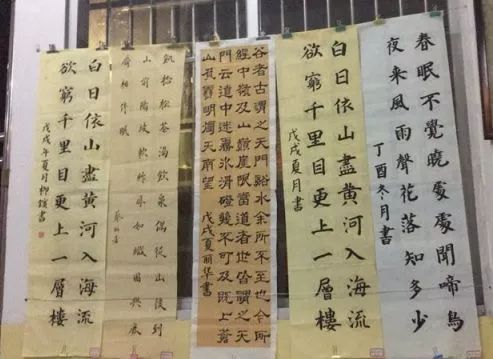 春眠不覺曉處處聞啼鳥
夜来風雨聲花落知多少
丁酉冬月書
白日依山盡黄河入海流
欲窮千里目更上一層樓
戊戌夏月書
谷者古謂之天門谿水余所不至也今所
經中嶺及山巔崖限當道者世皆謂之天
門云道中迷霧冰滑磴幾不可及既上蒼
山負雪明燭天南望 戊戌夏丽华書
飢拾松花渴飲泉偶從山後到
山前陽坡軟草厚如織困與鹿
麝相伴眠
白日依山盡黄河入海流
欲窮千里目更上一層樓
戊戌年夏月柳書